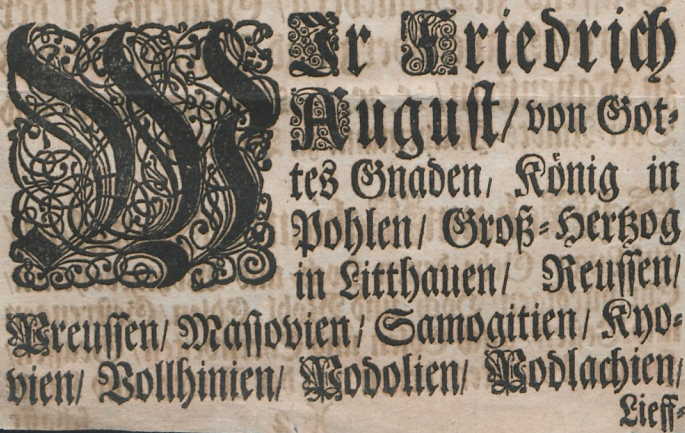 WIr Friedrich
August/ von Got-
tes Gnaden/ König in
Pohlen/ Groß-Hertzog
in Litthauen/ Reussen/
Preussen/ Massovien/ Samogitien/ Kyo-
vien/ Vollhinien/ Podolien/ Podlachien/
Lieff-